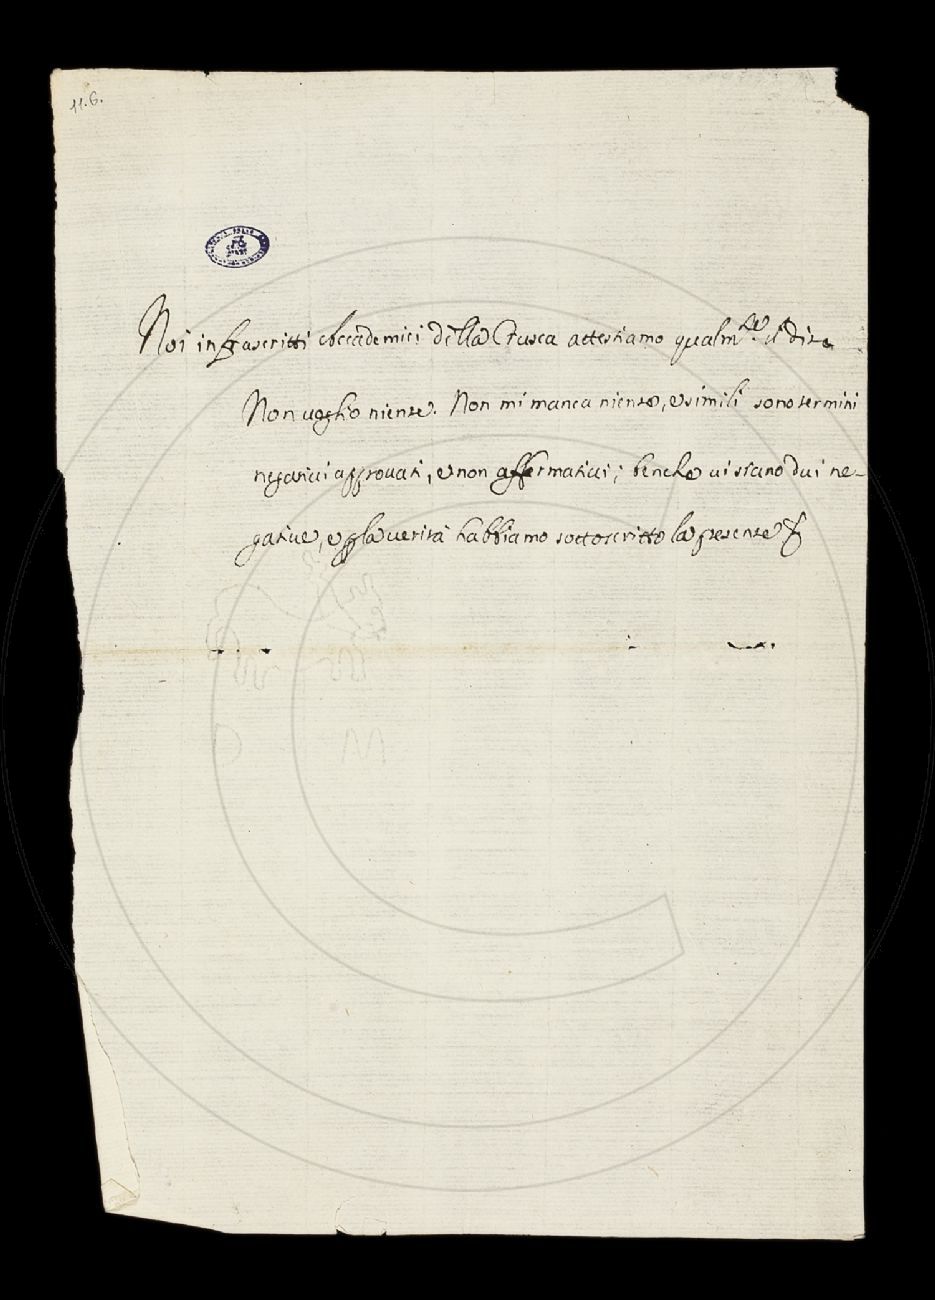 11.6.
Noi infrascritti Accademici della Crusca attestiamo qualm.te il dire
Non voglio niente. Non mi manca niente, e simili sono termini
negativi approvati, e non affermativi; benche vi siano dui ne-
gative, e p la verità habbiamo sottoscritto la presente